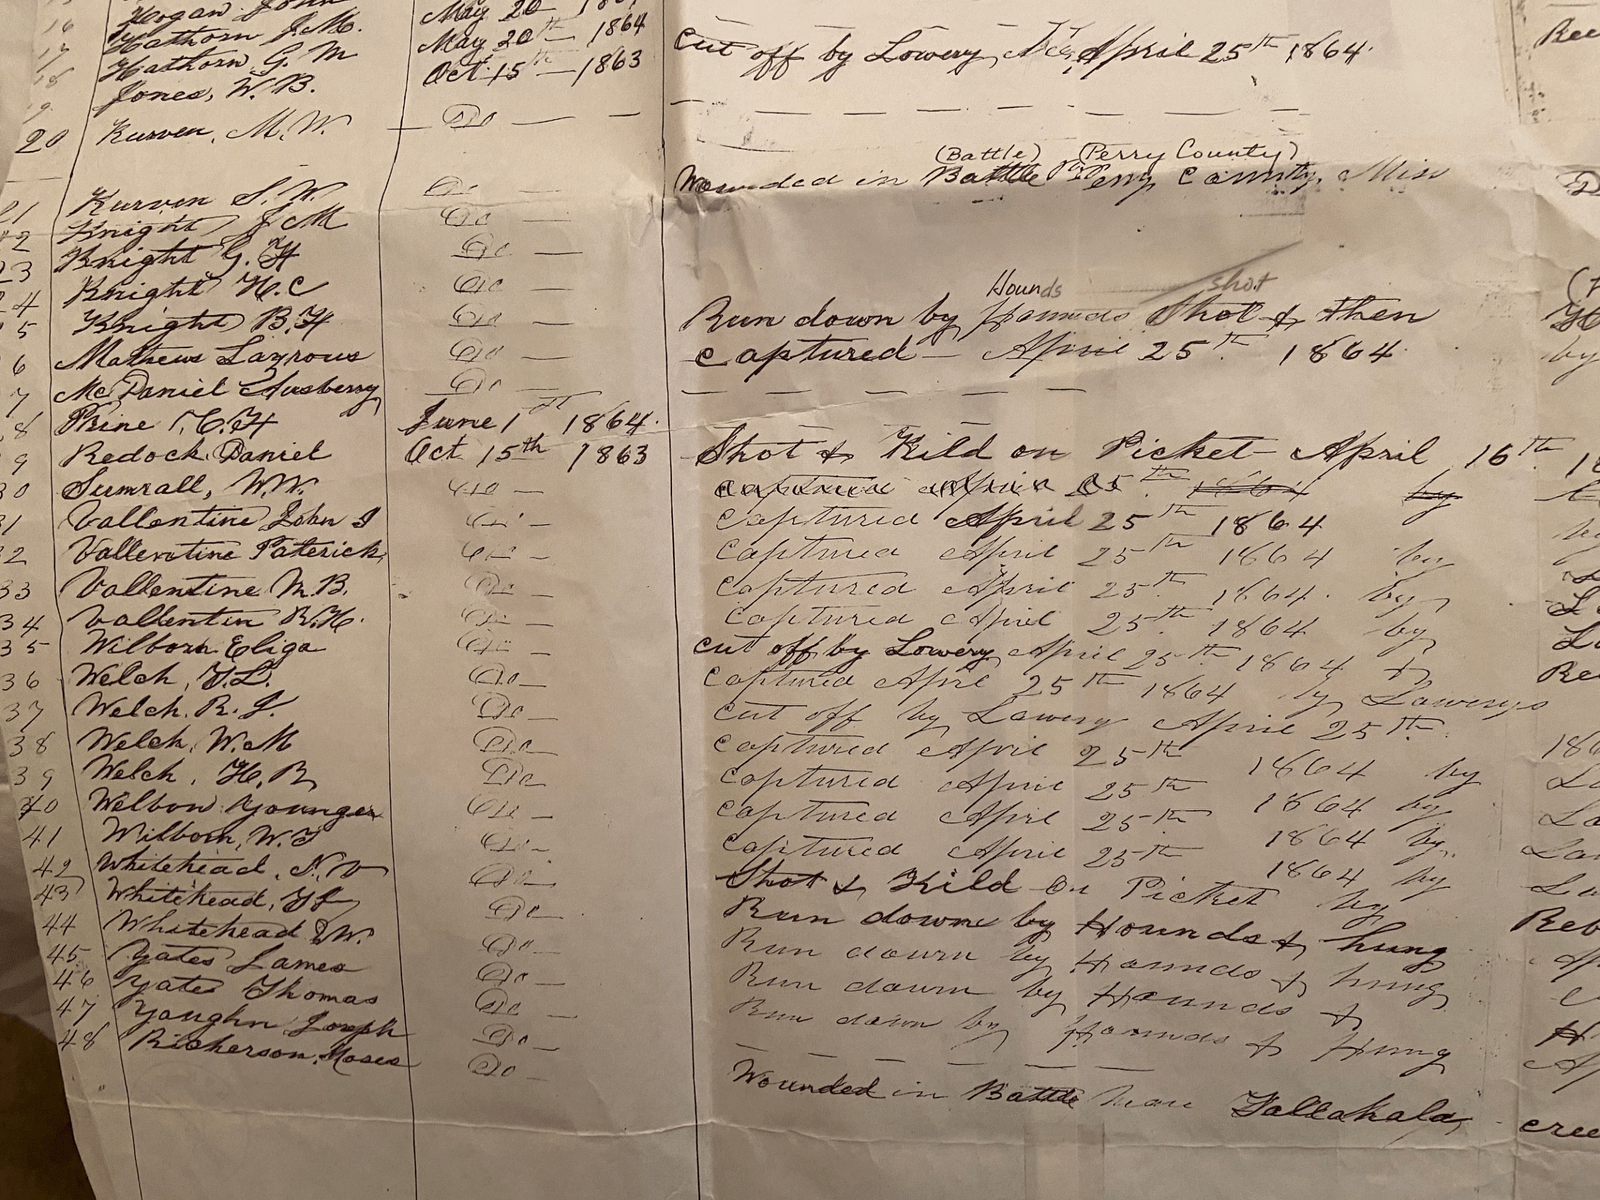 16 Hogan John May 20
17 Hathorn J.M. May 20th 1864
18 Hathorn G. M Oct 15th 1863 Cut off by Lowery April 25th 1864. Ree
19. Jones, W.B. Do
20 Kurven, M.W.
(Battle) (Perry County)
21 Kurven S. W. Do Wounded in Battle Perry County, Miss
22 Knight J M Do
23 Knight G. H Do
24 Knight H.C Do
Hounds shot
25 Knight B.H Do Run down by Hounds Shot & then
6 Mathews Lazrous Do Captured April 25th 1864 by
7 McDaniel Ausberry Do
8 Prine T.C.H June 1st 1864.
9 Redock Daniel Oct 15th 1863 Shot & Kild on Picket April 16th
30 Sumrall, W.W. Do captured 25th 1864 by
31 Vallentine John J Do Captured April 25th 1864 by
32 Vallentine Paterick Do Captured April 25th 1864 by
33 Vallentine M.B. Do Captured April 25th 1864. by
34 Vallentin R.H. Do Captured April 25th 1864 by
35 Wilborn Eliga Do cut off by Lowery April 25th 1864 &
36 Welch, T.L. Do Captured April 25th 1864 by Lowerys
37 Welch. R. J. Do Cut off by Lowery April 25th.
38 Welch, W.M Do Captured April 25th 1864 by
39 Welch, H. R Do Captured April 25th 1864 by
40 Welbon Younger Do Captured April 25th 1864 by
41 Wilborn, W.T Do Captured April 25th 1864 by
42 Whitehead, N.V Do Shot & Kild On Picket by
43 Whitehead, Do Run down by Hounds & hung Reb
44 Whitehead D.W. Do Run down by Hounds & hung
45 Yates James Do Run down by Hounds &
46 Yates Thomas Do Run down by Hounds & Hung
47 Yaughn Joseph Do
48 Richerson, Moses Do Wounded in Battle near Tallahala cree